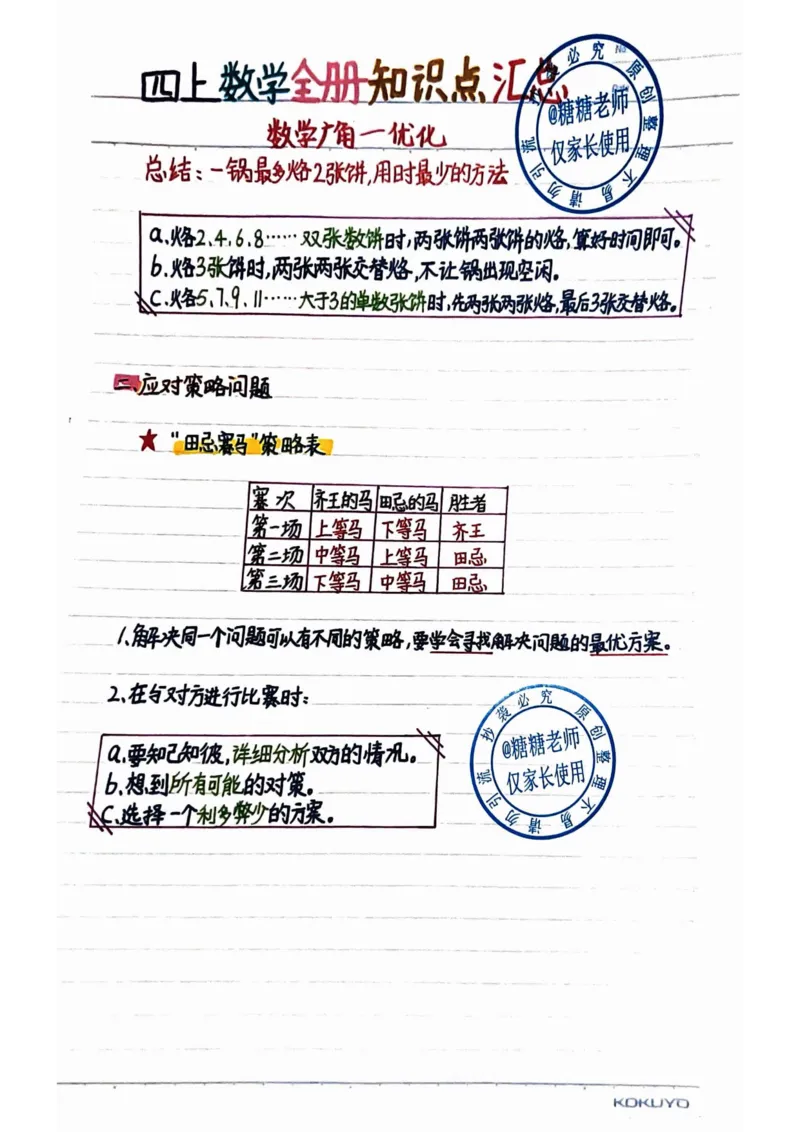 四上数学全册知识点汇总
数学广角一优化
总结:一锅最多烙2张饼,用时最少的方法
a.烙2、4、6、8……双张数饼时,两张饼两张饼的烙,算好时间即可。
b.烙3张饼时,两张两张交替烙,不让锅出现空闲。
C.烙5、7、9、11……大于3的单数张饼时,先两张两张烙,最后3张交替烙。
二、应对策略问题
★ "田忌赛马"策略表
赛次 齐王的马 田忌的马 胜者
第一场 上等马 下等马 齐王
第二场 中等马 上等马 田忌
第三场 下等马 中等马 田忌
1、解决同一个问题可以有不同的策略,要学会寻找解决问题的最优方案。
2、在与对方进行比赛时:
a.要知己知彼,详细分析双方的情况。
b.想到所有可能的对策。
C.选择一个利多弊少的方案。
抄袭必究 原创整理 不易 请勿引流
@糖糖老师
仅家长使用
抄袭必究 原创整理 不易 请勿引流
@糖糖老师
仅家长使用
KOKUYO